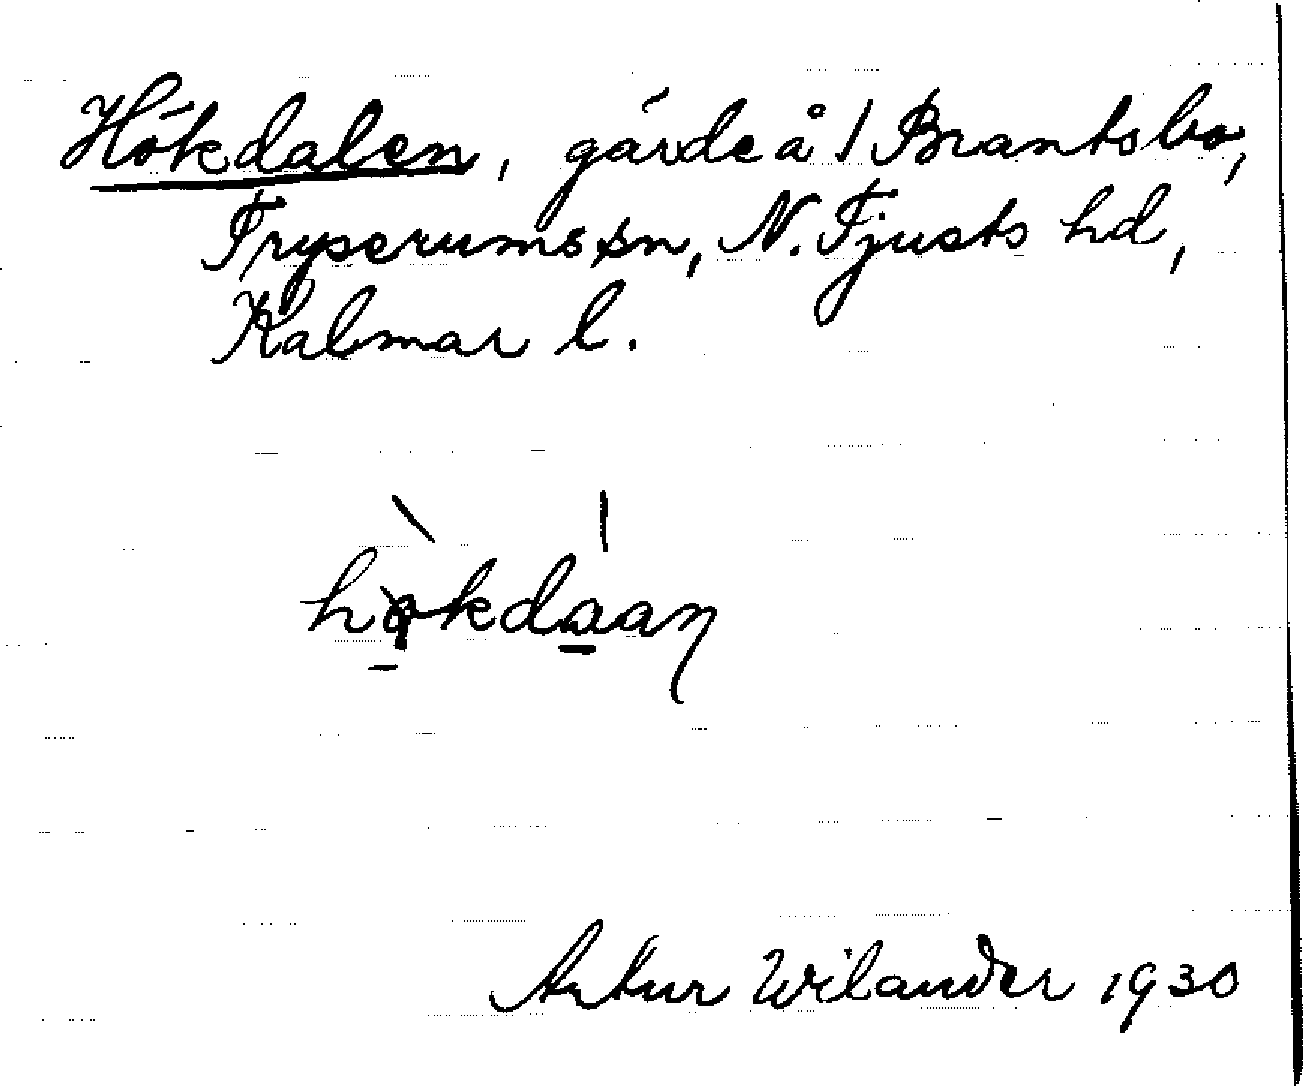 Hökdalen, gärde å / Brantsbo,
Tryserums sn, N. Tjusts hd,
Kalmar l.
hökdaan
Artur Wilander 1930